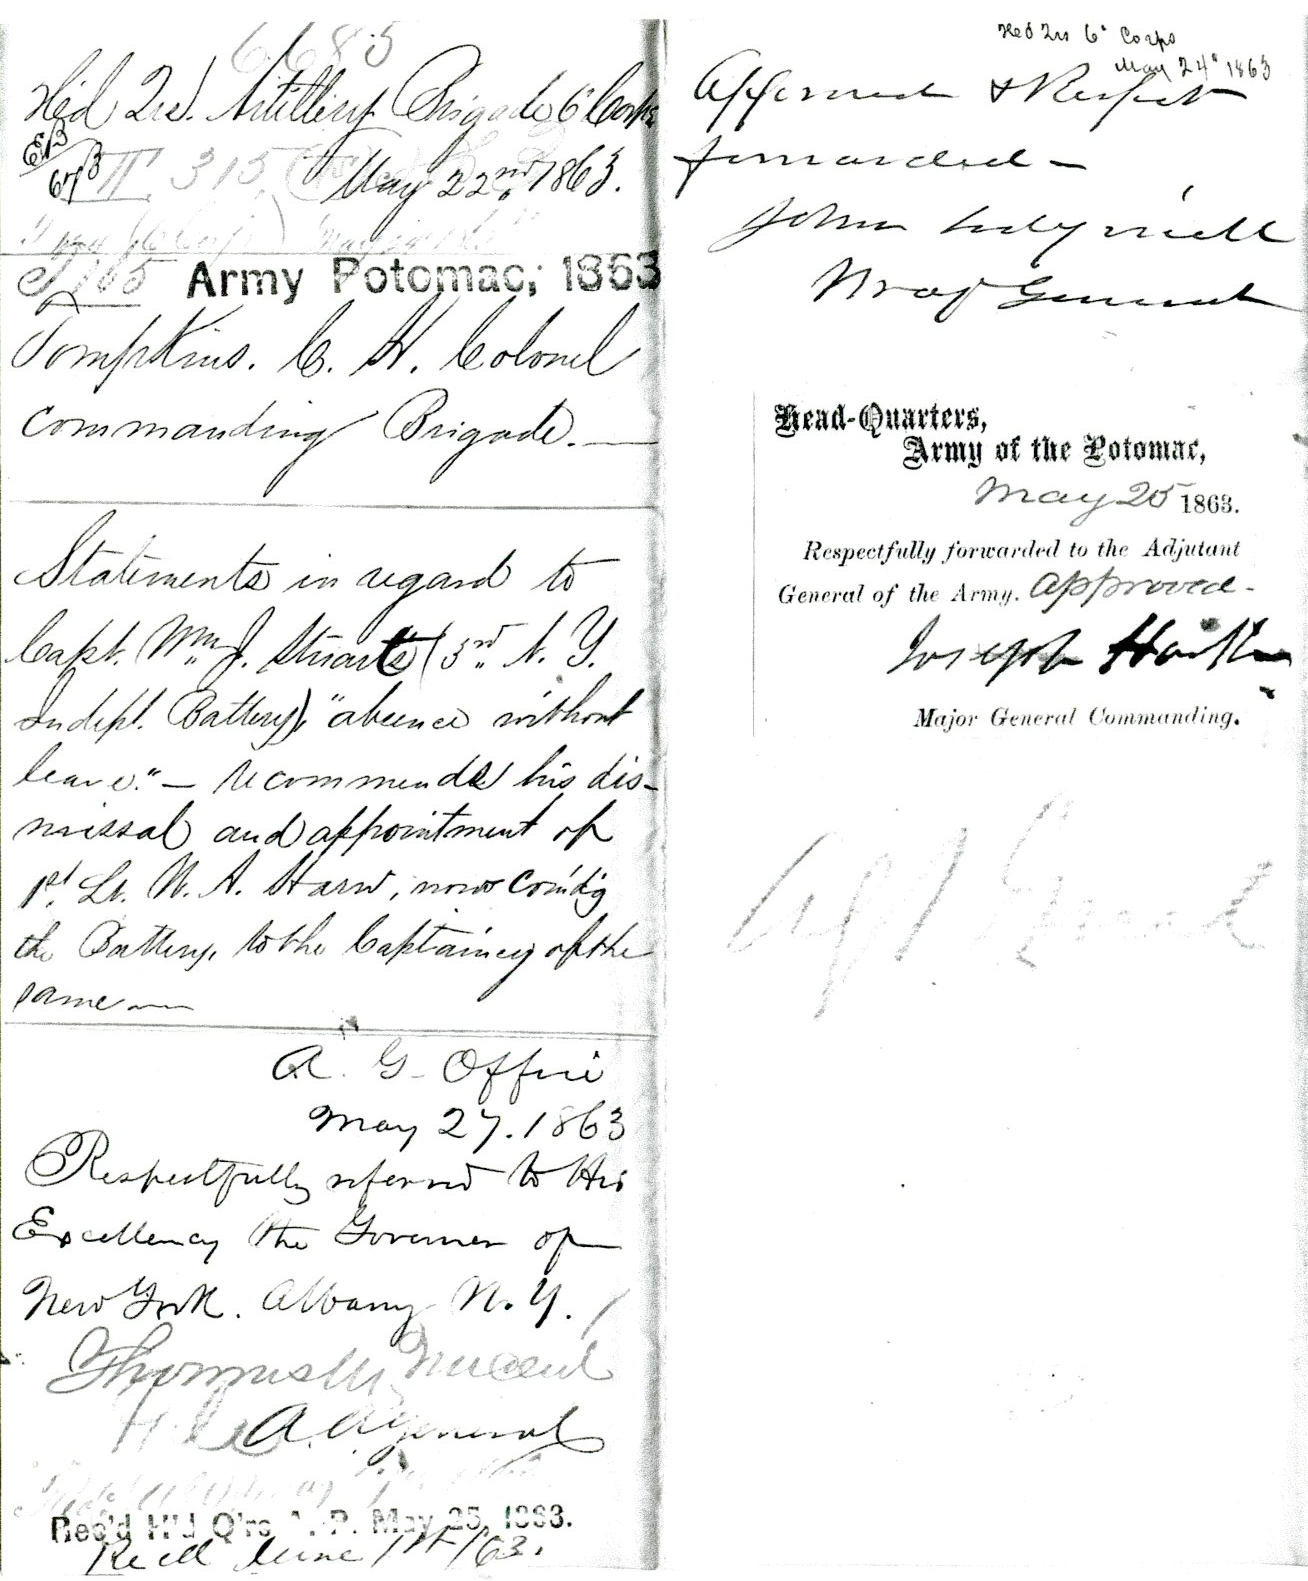 6685
H'd Qrs. Artillery Brigade 6" Corps
May 22nd. 1863.
315
Army Potomac, 1863
Tompkins. C. H. Colonel
Commanding Brigade.—
Statements in regard to
Capt. Wm J. Stuarts (3rd N. Y.
Indept. Battery), "absence without
leave."— recommends his dis-
missal and appointment of
1st Lt. W. A. Harn, now com'd'g
the Battery, to the Captaincy of the
same—
A. G. Office
May 27. 1863
Respectfully referred to His
Excellency the Governor of
New York. Albany N. Y.
Thomas M Vincent
A. A General
Rec'd H'd Q'rs A. P. May 25, 1863.
Recd June 1st /63.
Hed Qrs 6" Corps
May 24" 1863
Approved & Respect
forwarded —
John Sedgwick
Maj General
Head-Quarters,
Army of the Potomac,
May 25 1863.
Respectfully forwarded to the Adjutant
General of the Army. Approved-
Joseph Hooker
Major General Commanding.